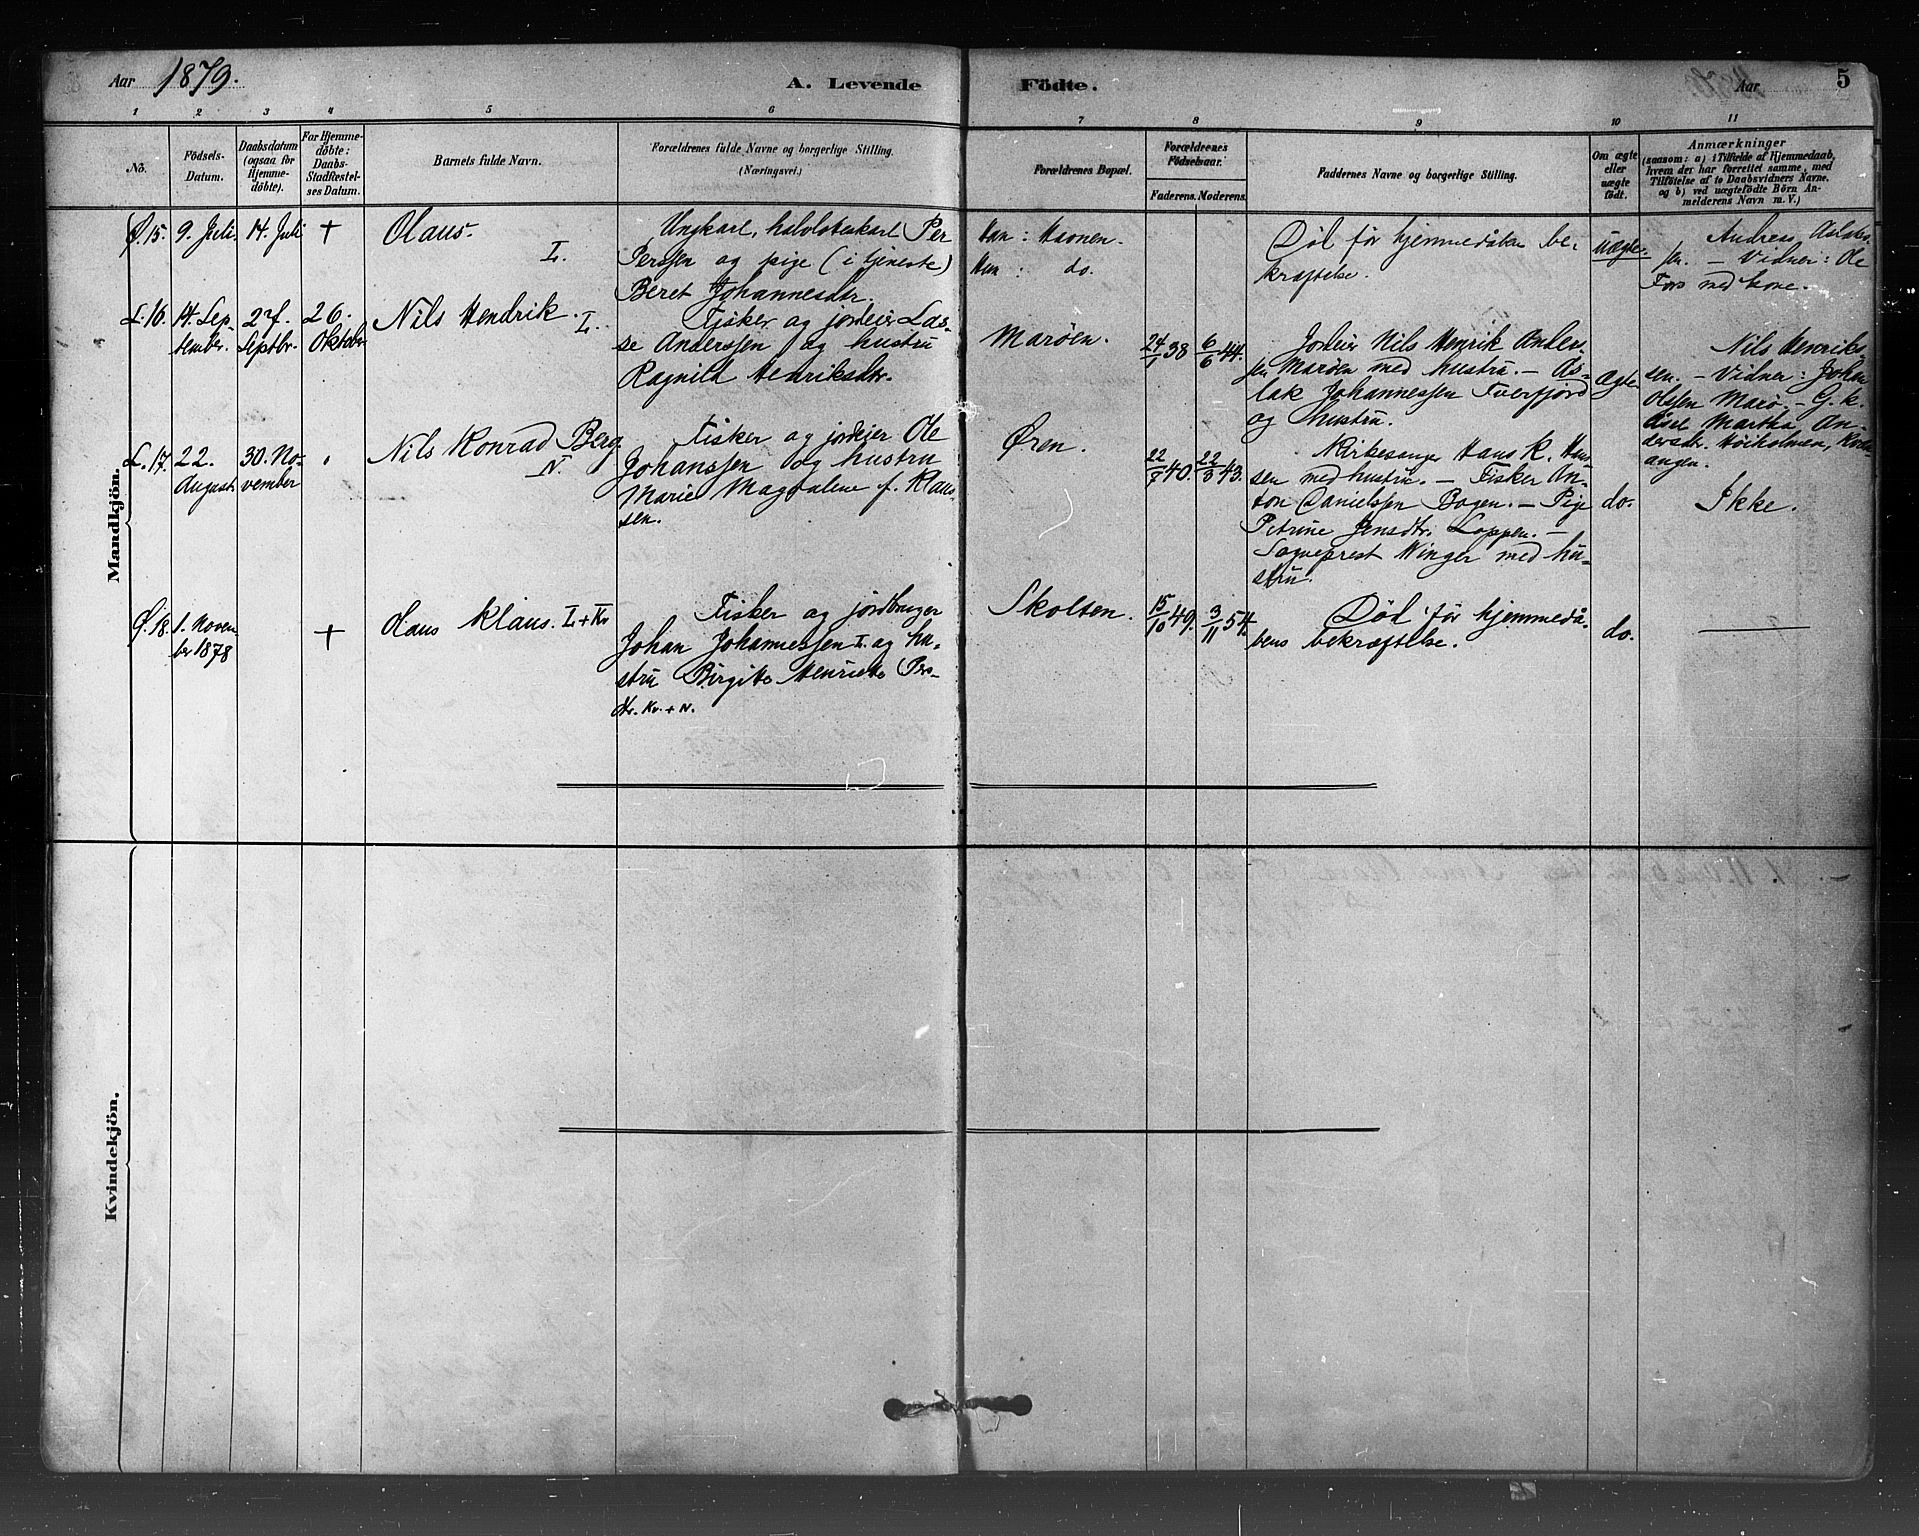 Aar 1879.
A. Levende Födte.
Aar
5
1 2 3 4 5 6 7 8 9 10 11
No.
Födsels-
Datum.
Daabsdatum
(ogsaa for
Hjemme-
döbte).
For Hjemme-
döbte:
Daabs-
Stadfæstel-
ses Datum.
Barnets fulde Navn.
Forældrenes fulde Navne og borgerlige Stilling.
(Næringsvei.)
Forældrenes Bopæl.
Forældrenes
Födselsaar.
Faderens. Moderens.
Faddernes Navne og borgerlige Stilling.
Om ægte
eller
uægte
födt.
Anmærkninger
(saasom: a) i Tilfælde af Hjemmedaab,
hvem der har forrettet samme, med
Tilföielse af to Daabsvidners Navne.
og b) ved uægtefödte Börn An-
melderens Navn m. V.)
Mandkjön.
Ø.15.
9. Juli.
14. Juli
+
Olaus.
L.
Ungkarl, halvlotskarl Per
Perssen og pige (i tjeneste)
Beret Johannesdtr.
Han: Havnen.
Hun: do.
Död för hjemmedåben be-
kræftelse.
uægte.
Andreas Aslak-
sen. – Vidner: Ole
Fors med kone.
L.16.
14. Sep-
tember.
27.
Septbr.
26.
Oktober
Nils Hendrik.
L.
Fisker og jordeier Las-
se Anderssen og hustru
Ragnild Henriksdtr.
Marøen.
24/1 38
6/6 44.
Jordeier Nils Henrik Anders-
sen Marøen med hustru. – As-
lak Johannessen Tverfjord
og hustru.
ægte
Nils Henriks-
sen. – Vidner: Johan
Olsen Marø. – G. k.
Martha An-
dersdtr. Høiholmen, Kven-
angen.
L.17.
22.
August
30. No-
vember
Nils Konrad Berg
N.
Fisker og jordeier Ole
Johanssen og hustru
Marie Magdalene f. Klaus-
sen.
Øren.
22/7 40.
22/3 43.
Kirkesanger Hans K. Han-
sen med hustru. – Fisker An-
ton Danielssen Bogen. – Pige
Petrine Jensdtr. Loppen. –
Sogneprest Winger med hu-
stru.
do.
Ikke.
Ø.18.
1. Novem-
ber 1878
+
Olaus Klaus. L+Kv
Fisker og jordbruger
Johan Johannessen L. og hu-
stru Birgitte Henriette Pers-
dtr. Kv.+N.
Skolten.
15/10 49.
3/11 54.
Død för hjemmedå-
bens bekræftelse.
do.
Kvindekjön.